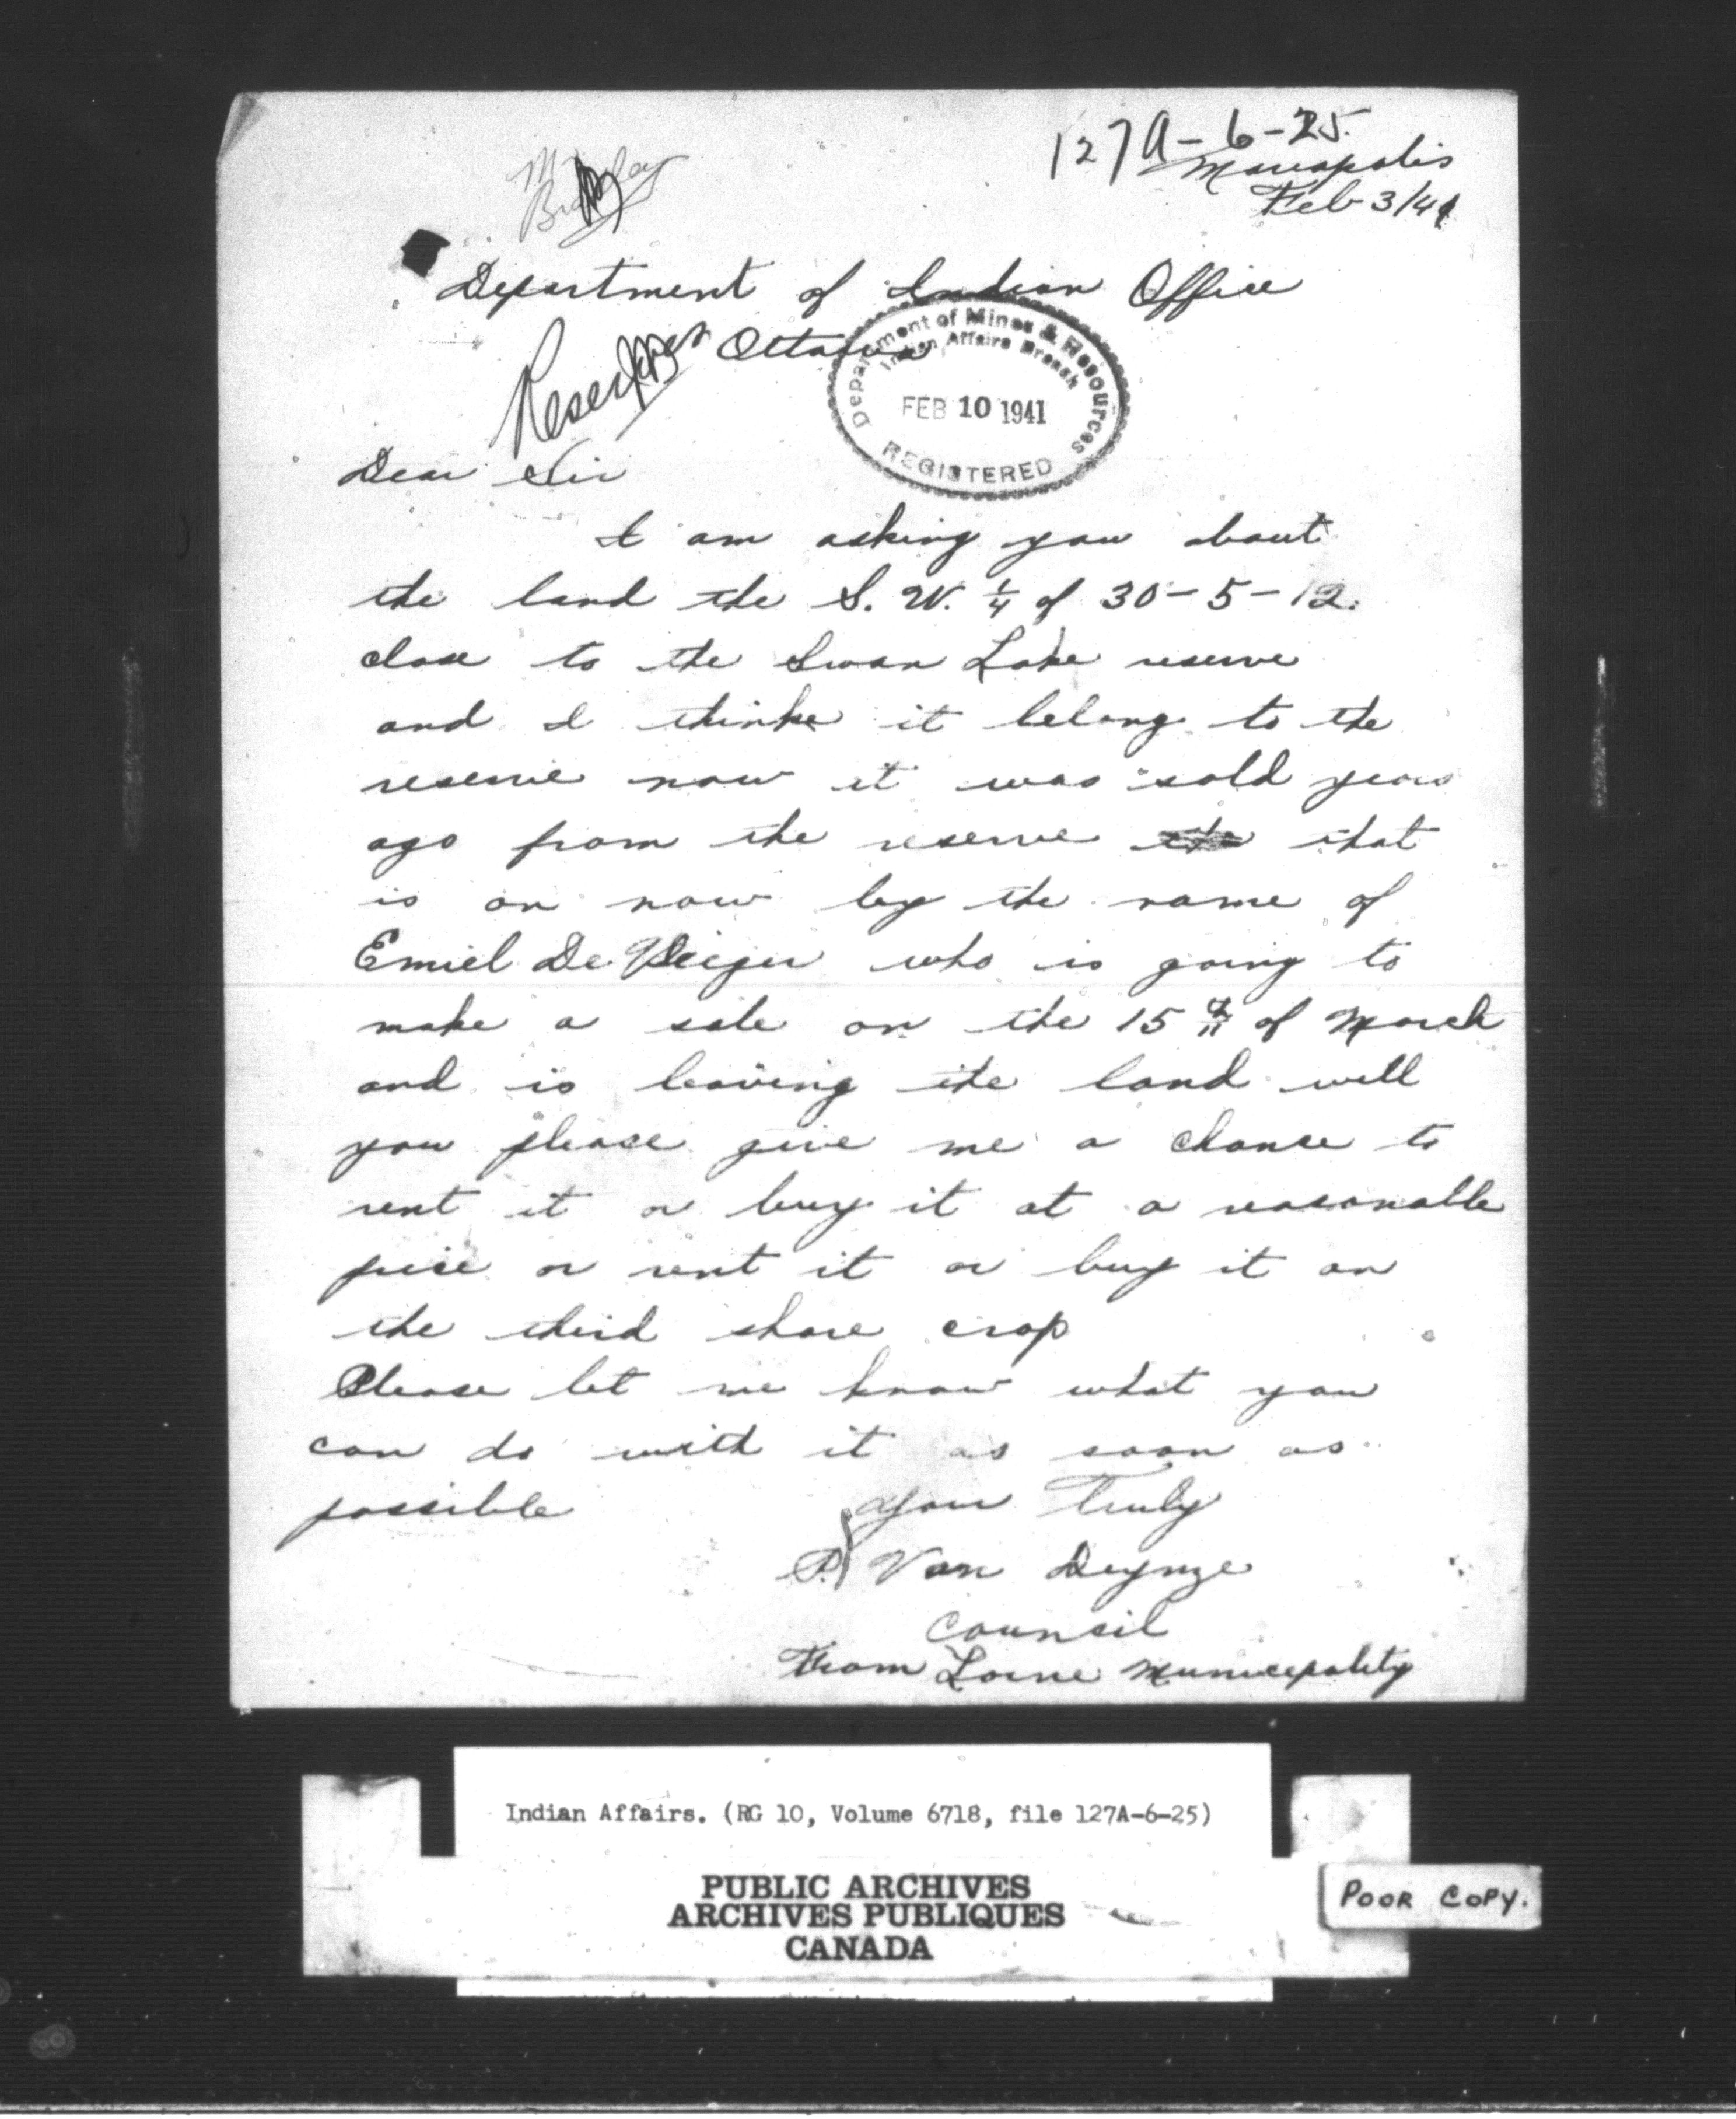 127A-6-25.
Mariapolis
Feb 3/41
Department of Indian Office
Ottawa
Department of Mines & Resources
Indian Affairs Branch
FEB 10 1941
REGISTERED
Dear Sir
I am asking you about
the land the S. W. 1/4 of 30-5-12.
close to the Swan Lake reserve
and I thinke it belong to the
reserve now it was sold years
ago from the reserve that
is on now by the name of
Emiel De
who is going to
make a sale on the 15 th of March
and is leaving the land will
you please give me a chance to
rent it or buy it at a reasonable
price or rent it or buy it on
the third share crop
Please let me know what you
can do with it as soon as
possible
Your Truly
P. Van Deynze
Council
From Lorne Municepality
Indian Affairs. (RG 10, Volume 6718, file 127A-6-25)
PUBLIC ARCHIVES
ARCHIVES PUBLIQUES
CANADA
POOR COPY.